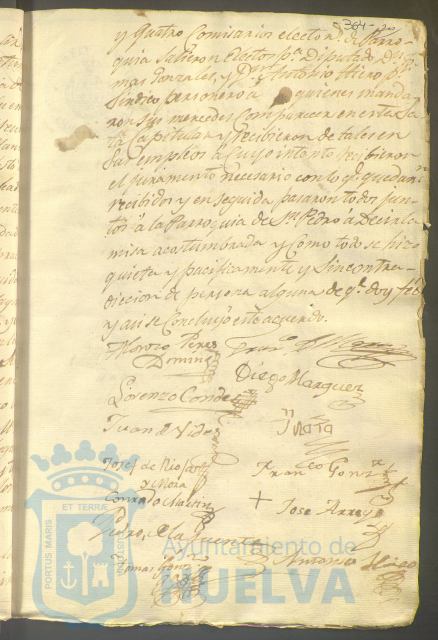 364
y quatro Comisarios elector.s de Parro-
quia salieron electos p.a Diputado D.n
mas Gonzales, y D.n Antonio
Sindico personero a quienes manda
ron sus mercedes comparecer en esta Sa
la Capitular y recibieron de tales en
sus empleos á cuyo intento recibieron
el juramento necesario con lo q.e quedaron
recibidos y en seguida pasaron todos jun-
tos á la Parroquia de S.n Pedro á Decir la
misa acostumbrada y como todo se hizo
quieta y pacificamente y sin contra-
diccion de persona alguna de q.e doy fee
y asi se concluyó este acuerdo.
Perez
Doming
Diego Marquez
Lorenzo Conde
Juan de Vides
Josef de Rio
y Mora
Fran.co Gonz.z
Conrado Martin
+ Jose Arroyo
Pedro de la Fuente
Tomas Gonz
Antonio
PORTUS MARIS ET TERRAE CUSTODIA
Ayuntamiento de
HUELVA